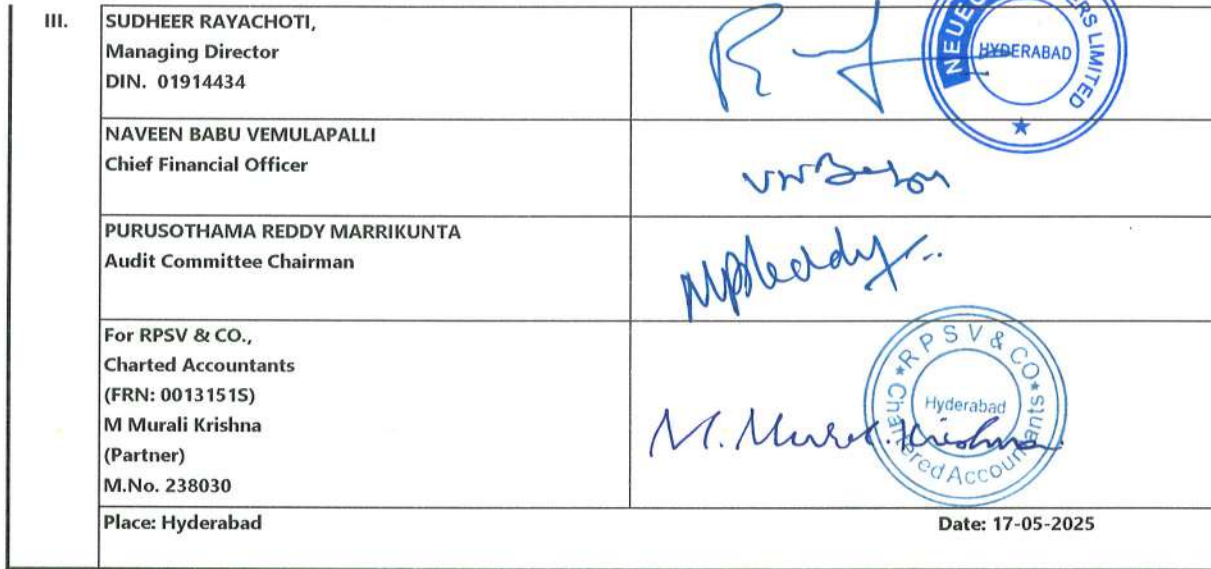 III.
SUDHEER RAYACHOTI,
Managing Director
DIN. 01914434
HYDERABAD
ERS LIMITED
NAVEEN BABU VEMULAPALLI
Chief Financial Officer
PURUSOTHAMA REDDY MARRIKUNTA
Audit Committee Chairman
MPReddy
For RPSV & CO.,
Charted Accountants
(FRN: 0013151S)
M Murali Krishna
(Partner)
M.No. 238030
R P S V & CO
Hyderabad
Chartered Accountants
M. Murali Krishna
Place: Hyderabad
Date: 17-05-2025